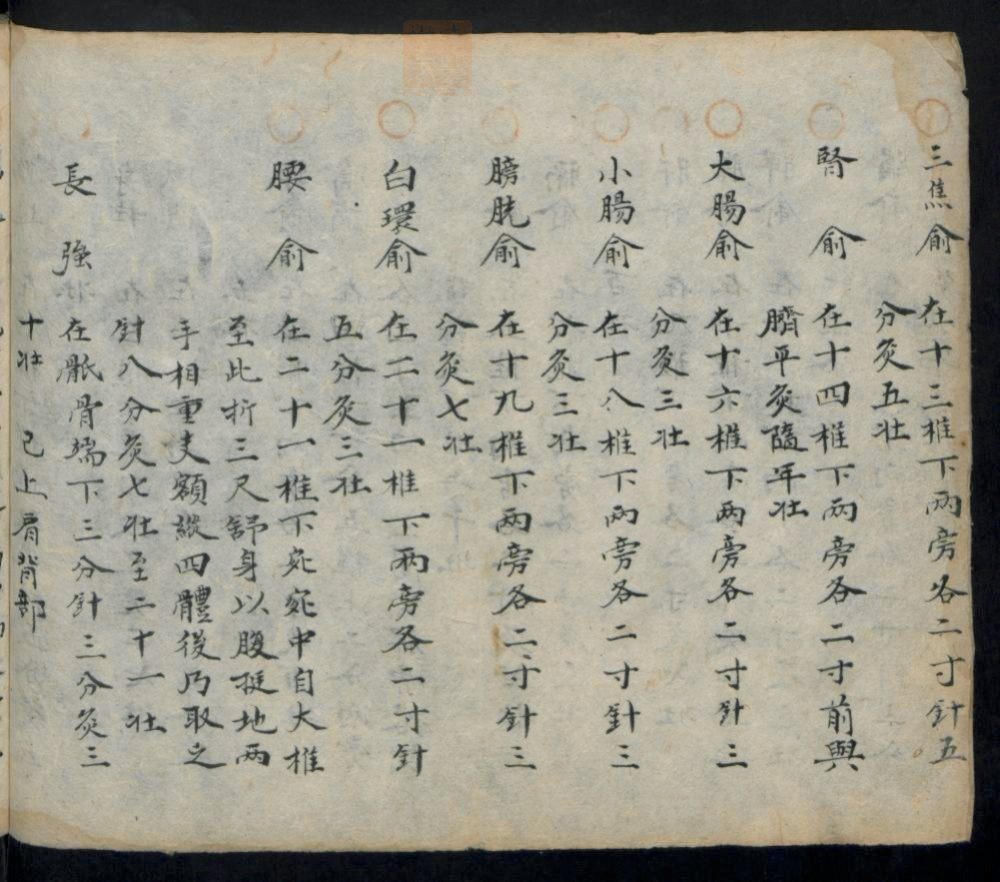 三焦俞 在十三椎下兩旁各二寸針五
分灸五壯
腎俞 在十四椎下兩旁各二寸前與
臍平灸隨年壯
大腸俞 在十六椎下兩旁各二寸針三
分灸三壯
小腸俞 在十八椎下兩旁各二寸針三
分灸三壯
膀胱俞 在十九椎下兩旁各二寸針三
分灸七壯
白環俞 在二十一椎下兩旁各二寸針
五分灸三壯
腰俞 在二十一椎下宛宛中自大椎
至此折三尺舒身以腹挺地兩
手相重支額縱四體後乃取之
針八分灸七壯至二十一壯
長強 在骶骨端下三分針三分灸三
十壯 已上肩背部